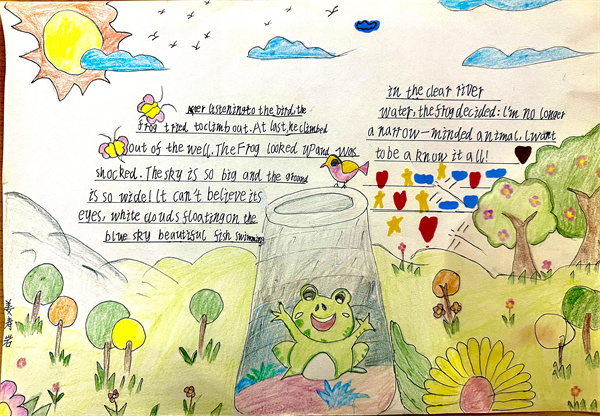 After listening to the bird, the
frog tried to climb out. At last, he climbed
out of the well. The Frog looked up and was
shocked. The sky is so big and the ground
is so wide! It can't believe its
eyes, white clouds floating on the
blue sky beautiful fish swimming
in the clear river
water, the frog decided: I'm no longer
a narrow-minded animal, I want
to be a know it all!